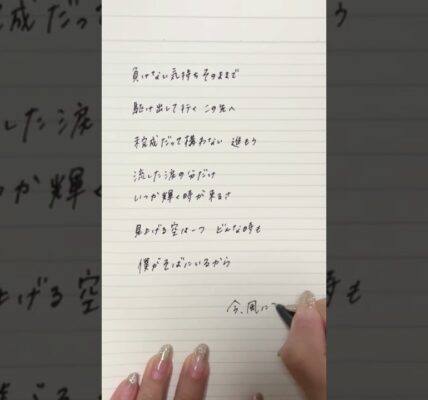 負けない気持ちそのままで
駆け出して行く この先へ
未完成だって構わない 進もう
流した涙の分だけ
いつか輝く時が来るさ
見上げる空は一つ どんな時も
僕がそばにいるから
今、風に